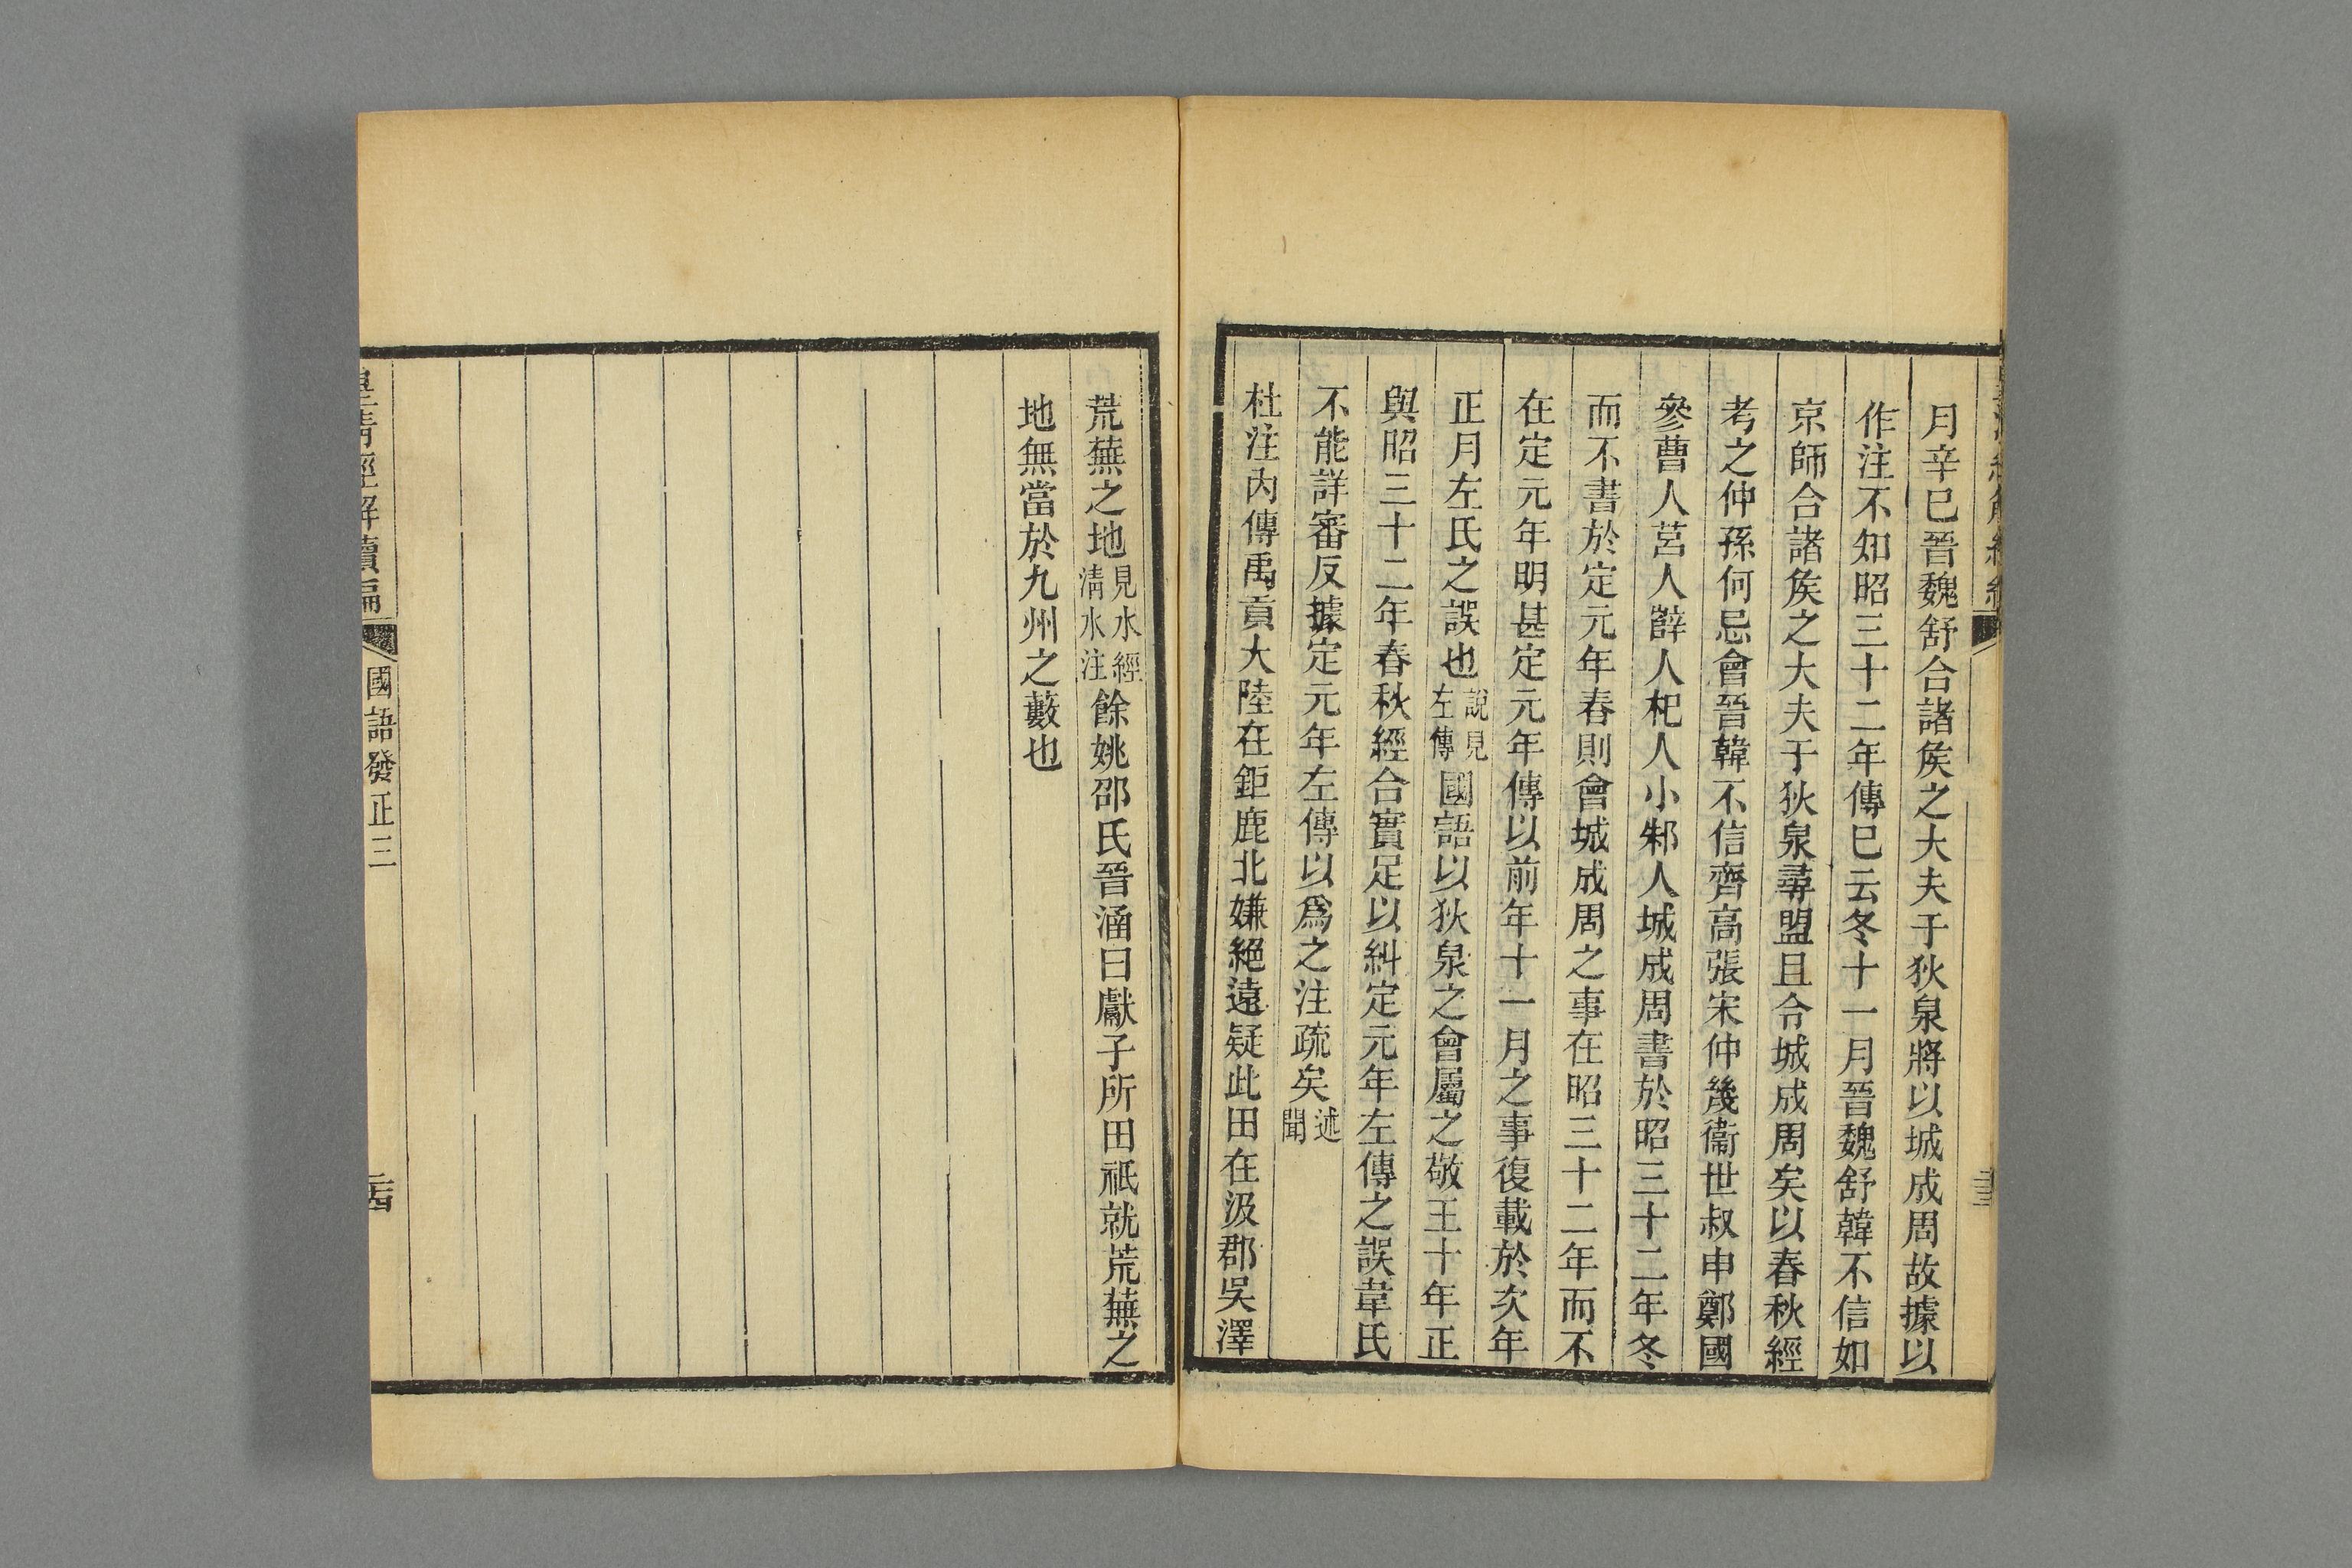 月辛巳晉魏舒合諸矦之大夫于狄泉將以城成周故據以
作注不知昭三十二年傳巳云冬十一月晉魏舒韓不信如
京師合諸矦之大夫于狄泉尋盟且令城成周矣以春秋經
考之仲孫何忌會晉韓不信齊高張宋仲幾衞世叔申鄭國
參曹人莒人辥人杞人小邾人城成周書於昭三十二年冬
而不書於定元年春則會城成周之事在昭三十二年而不
在定元年明甚定元年傳以前年十一月之事復載於次年
正月左氏之誤也說見左傳國語以狄泉之會屬之敬王十年正
與昭三十二年春秋經合實足以糾定元年左傳之誤韋氏
不能詳審反據定元年左傳以爲之注疏矣述聞
杜注內傳禹貢大陸在鉅鹿北嫌絕遠疑此田在汲郡吳澤
荒蕪之地見水經清水注餘姚邵氏晉涵曰獻子所田祇就荒蕪之
地無當於九州之藪也
皇清經解續編
國語發正三